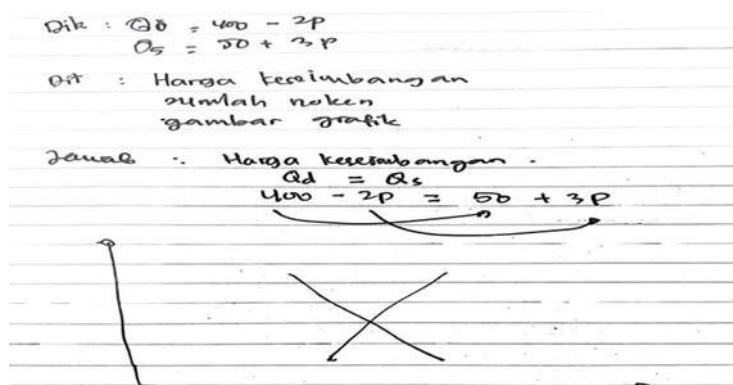 Dik : Qd = 400 - 2p
Qs = 50 + 3p
Dit : Harga keseimbangan
Jumlah noken
gambar grafik
Jawab : Harga keseimbangan.
Qd = Qs
400 - 2p = 50 + 3p